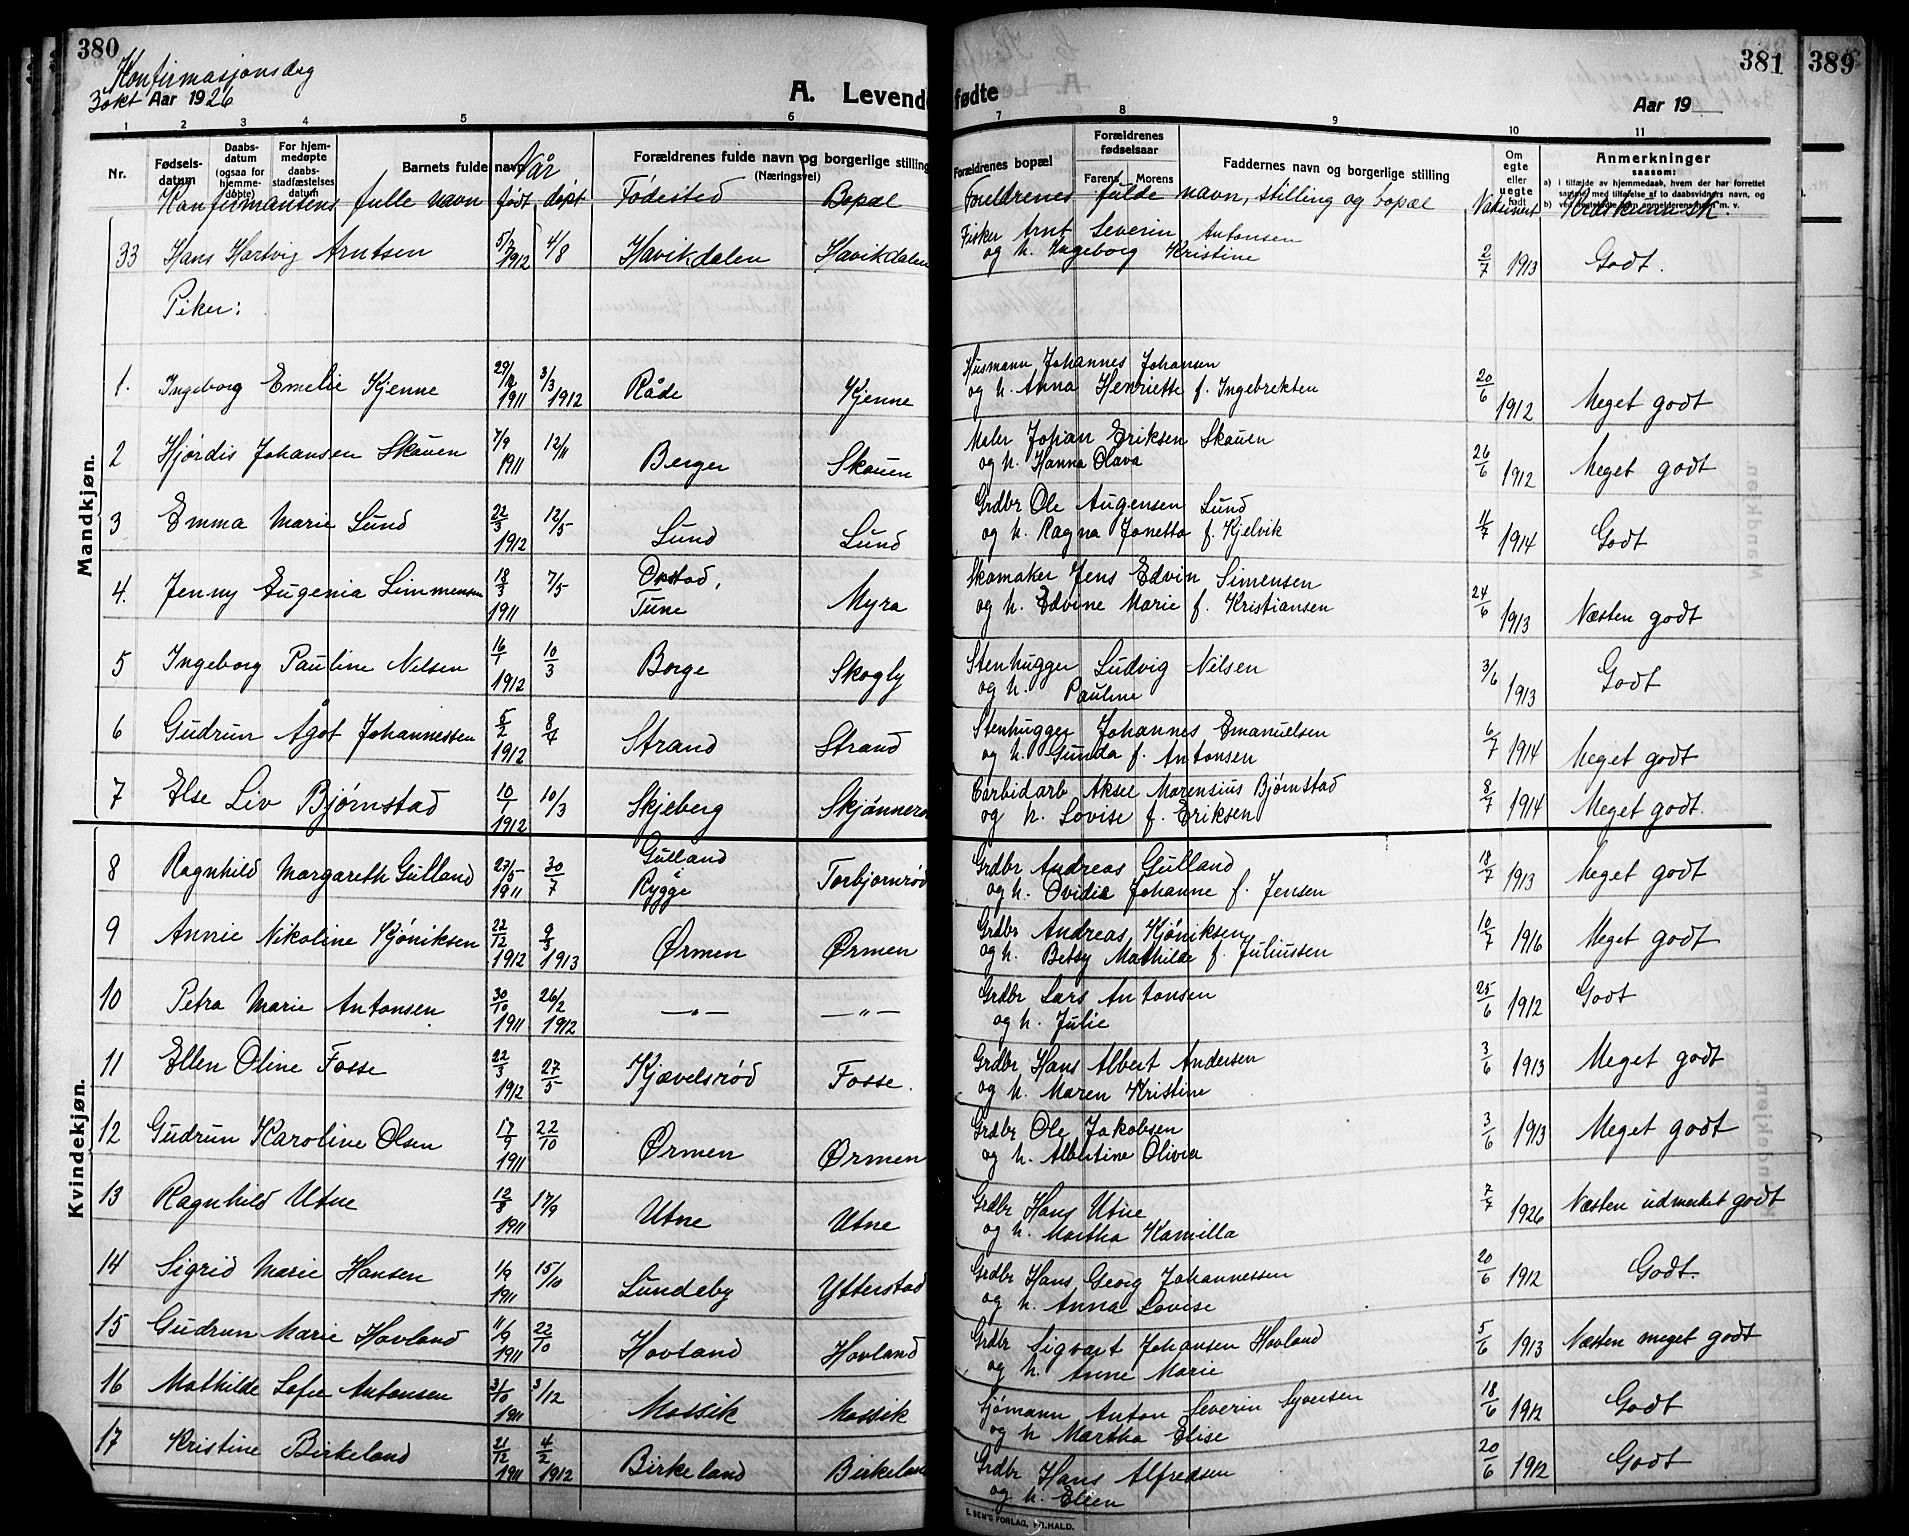 380
Konfirmasjonsdag
3 okt Aar 1926
A. Levende
1 2 3 4 5 6
Nr.
Fødsels-datum
Daabs-datum (ogsaa for hjemme-døbte)
For hjem-medøpte daabs-stadfæstelses datum
Barnets fulde navn
Forældrenes fulde navn og borgerlige stilling
(Næringsvei)
Konfirmantens fulle navn
Når
født døpt
Fødested
Bopæl
Mandkjøn.
33 Hans Hartvig Arntsen 5/7 1912 4/8 Havikdalen Havikdalen
Piker:
1. Ingeborg Emelie Kjenne 29/9 1911 3/3 1912 Råde Kjenne
2 Hjørdis Johansen Skauen 7/9 1911 12/11 Berger Skauen
3 Emma Marie Lund 22/3 1912 12/5 Lund Lund
4. Jenny Eugenia Simmensen 18/3 1911 7/5 Tune Myra
5 Ingeborg Pauline Nilsen 16/1 1912 10/3 Borge Skogby
6 Gudrun Ågot Johannessen 5/2 1912 8/4 Strand Strand
7 Else Liv Bjørnstad 10/1 1912 10/3 Skjeberg Skjånnerø
Kvindekjøn.
8 Ragnhild Margareth Gulland 27/5 1911 30/7 Gulland i Rygge Torbjørnrød
9 Annie Nikoline Kjøniksen 22/12 1912 9/3 1913 Ørmen Ørmen
10 Petra Marie Antonsen 30/10 1911 26/2 1912 —"— —"—
11 Ellen Oline Fosse 22/3 1912 27/5 Kjævelsrød Fosse.
12 Gudrun Karoline Olsen 17/9 1911 22/10 Ørmen Ørmen
13 Ragnhild Utne 12/8 1911 17/9 Utne Utne
14 Sigrid Marie Hansen 1/9 1911 15/10 Lundeby Ytterstad
15 Gudrun Marie Hovland 11/9 1911 22/10 Hovland Hovland
16 Mathilde Sofie Antonsen 3/10 1911 3/12 Mossik Mossik
17 Kristine Birkeland 21/12 1911 4/2 1912 Birkeland Birkelan
381
389
fødte
Aar 19
7 8 9 10 11
Forældrenes bopæl
Forældrenes fødselsaar
Farens Morens
Faddernes navn og borgerlige stilling
Om egte eller uegte født
Anmerkninger
saasom:
a) i tilfælde av hjemmedaab, hvem der har forrettet samme med tilføielse af to daabsvidners navn, og
b) ved anmelderens navn m. v.
Foreldrenes fulde navn, stilling og bopæl
Vaksinert
Kristkunnsk.
Fisker Arnt Severin Antonsen
og h. Ingeborg Kristine 2/7 1913 Godt.
Husmann Johannes Johansen
og h. Anna Henriette f. Ingebrektsen 20/6 1912 Meget godt
Maler Johan Eriksen Skauen
og h. Hanna Olava 26/6 1912 Meget godt
Grdbr Ole Augensen Lund
og h. Ragna Jonetta f. Kjelvik 11/7 1914 Godt
Skomaker Jens Edvin Simensen
og h. Edvine Marie f. Kristiansen 24/6 1913 Næsten godt
Stenhugger Ludvig Nilsen
og h. Pauline 3/6 1913 Godt
Stenhugger Johannes Emanuelsen
og h. Gunda f. Antonsen 6/7 1914 Meget godt
Carbidarb Aksel Marensius Bjørnstad
og h. Lovise f. Eriksen 8/7 1914 Meget godt.
Grdbr Andreas Gulland
og h. Ovidia Johanne f. Jensen 18/7 1913 Meget godt
Grdbr Andreas Kjøniksen
og h. Betsy Mathilde f. Juliussen 10/7 1916 Meget godt
Grdbr Lars Antonsen
og h. Julie 25/6 1912 Godt
Grdbr Hans Albert Andersen
og h. Maren Kristine 3/6 1913 Meget godt
Grdbr Ole Jakobsen
og h. Albertine Olivia 3/6 1913 Meget godt
Grdbr Hans Utne
og h. Martha Kamilla 7/7 1926 Næsten udmerket godt
Grdbr Hans Georg Johannessen
og h. Anna Lovise 20/6 1912 Godt.
Grdbr Sigvart Johansen Hovland
og h. Anne Marie 5/6 1913 Næsten meget godt
Sjømann Anton Severin Syversen
og h Martha Elise 18/6 1912 Godt
Grdbr Hans Alfredsen
og h. Ellen 20/6 1912 Godt
E. SEM'S FORLAG, FR.HALD.